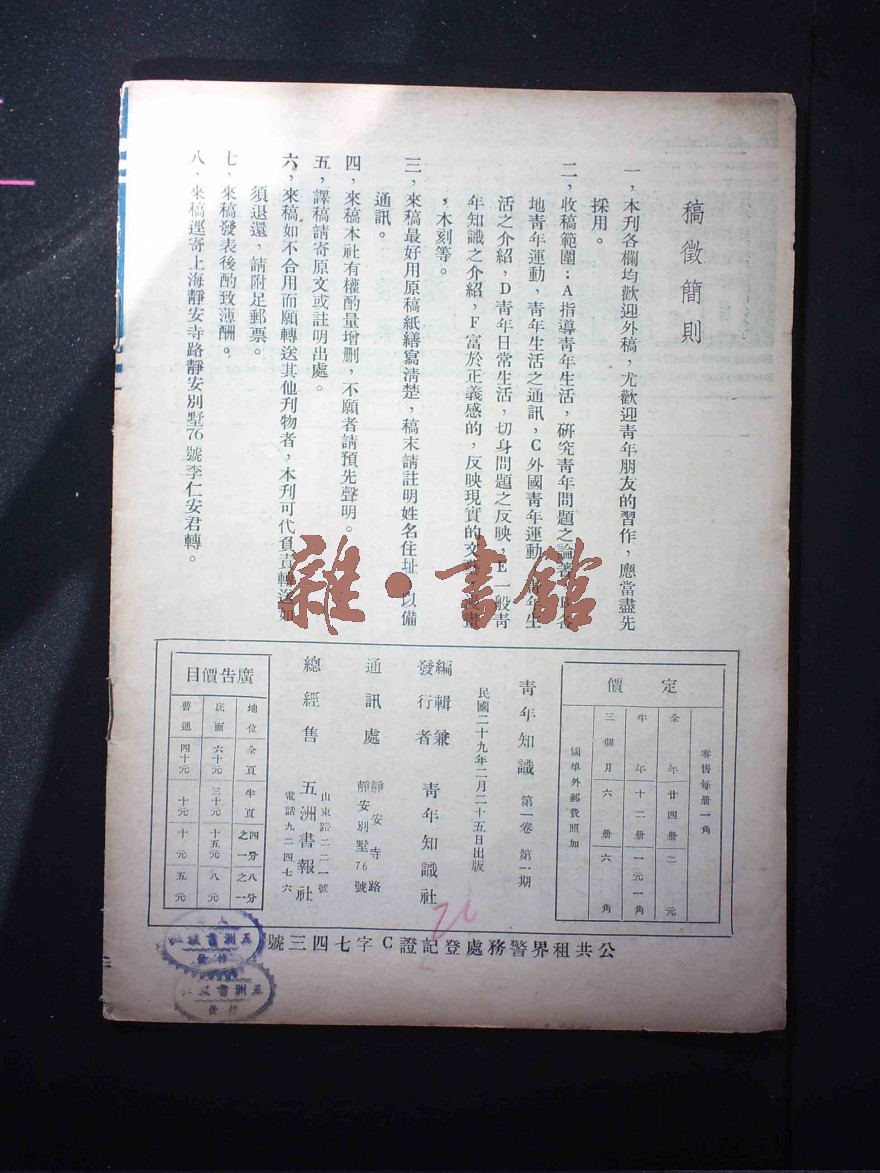 稿徵簡則
一，本刊各欄均歡迎外稿，尤歡迎靑年朋友的習作，應當盡先
採用。
二，收稿範圍：A指導靑年生活，研究靑年問題之論著，B各
地靑年運動，靑年生活之通訊，C外國靑年運動，靑年生
活之介紹，D靑年日常生活，切身問題之反映，E一般靑
年知識之介紹，F富於正義感的，反映現實的文
，木刻等。
三，來稿最好用原稿紙繕寫淸楚，稿末請註明姓名住址，以備
通訊。
四，來稿本社有權酌量增删，不願者請預先聲明。
五，譯稿請寄原文或註明出處。
六，來稿如不合用而願轉送其他刋物者，本刋可代負責轉送如
須退還，請附足郵票。
七，來稿發表後酌致薄酬。
八，來稿逕寄上海靜安寺路靜安別墅76號李仁安君轉。
定價
零售每册一角
全年 廿四册 二元
半年 十二册 一元一角
三個月 六册 六角
國外郵費照加
靑年知識 第一卷 第二期
民國二十九年二月二十五日出版
編輯兼
發行者 靑年知識社
通訊處 靜安寺路
靜安別墅76號
總經售 五洲書報社
山東路二二一號
電話九二四七六
廣告價目
地位 全頁 半頁 四分之一 八分之一
底面 六十元 三十元 十五元 八元
普通 四十元 十元 十元 五元
公共租界警務處登記證C字七四三號
五洲書報社
發行
五洲書報社
發行
雜·書館